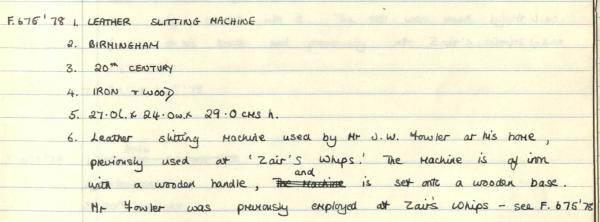 F.675'78 1. LEATHER SLITTING MACHINE
2. BIRMINGHAM
3. 20TH CENTURY
4. IRON + WOOD
5. 27.0L. x 24.0w. x 29.0 cms h.
6. Leather slitting machine used by Mr J.W. Fowler at his home,
previously used at 'Zair's Whips.' The machine is of iron
with a wooden handle, and is set onto a wooden base.
Mr Fowler was previously employed at Zair's Whips - see F.675'78